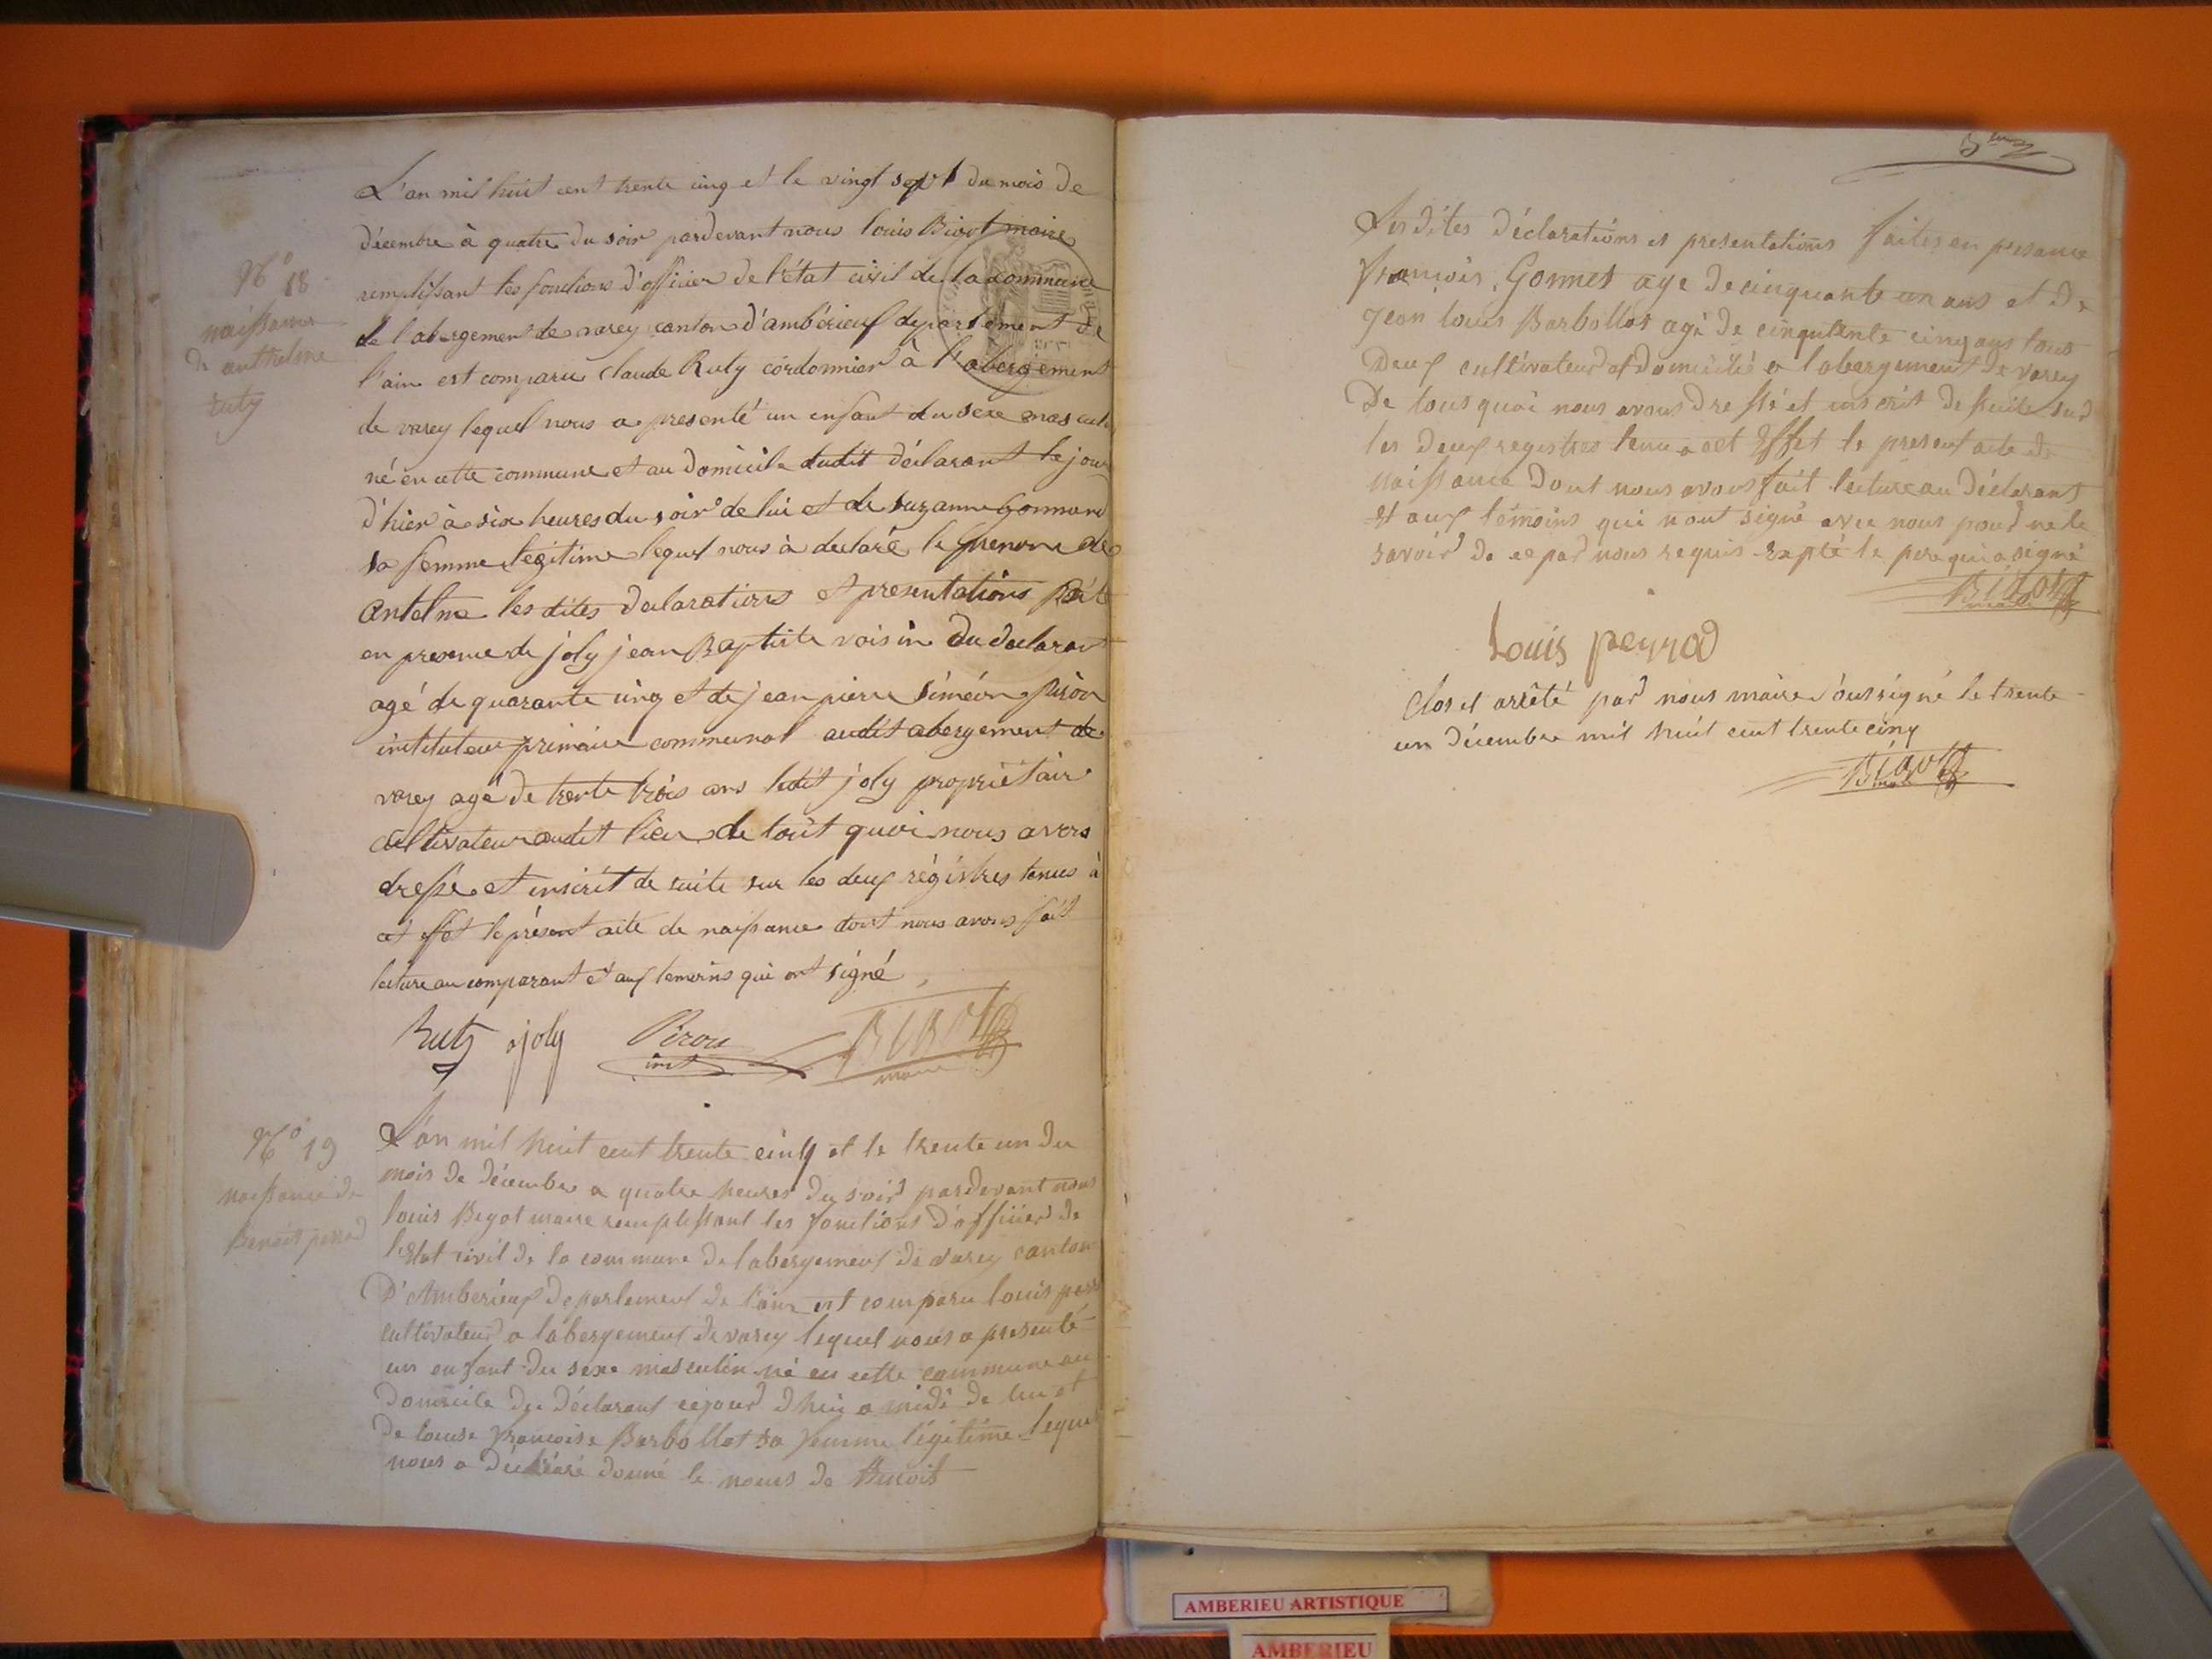 N° 18
naissance
de anthelme
ruty
L'an mil huit cent trente cinq et le vingt sept du mois de
décembre à quatre du soir pardevant nous louis Bigot maire
remplissant les fonctions d'officier de l'état civil de la commune
de l'abergement de varey canton d'ambérieuf departement de
l'ain est comparu Claude Ruty cordonnier à l'abergement
de varey lequel nous a presenté un enfant du sexe mascul
né en cette commune et au domicile dudit déclarant le jour
d'hier à six heures du soir de lui et de suzanne Gonnand
sa femme légitime lequel nous à declaré le prenom de
antelme les dites declarations et presentations fait
en presence de joly jean Baptiste voisin du declarant
agé de quarante cinq et de jean pierre siméon Piron
instituteur primaire communal audit abergement de
varey agé de trente trois ans ledit joly propriétair
cultivateur audit lieu de tout quoi nous avons
dressé et inscrit de suite sur les deux régistres tenus à
cet effet le présent acte de naissance dont nous avons fait
lecture au comparant et aux temoins qui ont signé
Ruty joly Piron BIGOT
inst maire
N° 19
naissance de
Benoit perrod
L'an mil huit cent trente cinq et le trente un du
mois de décembre a quatre heures du soir pardevant nous
louis Bigot maire remplissant les fonctions d'officier de
l'Etat civil de la commune de labergement de varey canton
D'Amberieuf departement de l'ain est comparu louis perr
cultivateur a labergement de varey lequel nous a presenté
un enfant du sexe masculin né en cette commune au
domicile du déclarant cejour d'hier a midi de lui et
de louise francoise Barbollat sa femme légitime lequel
nous a déclaré donné le noms de Benoit
Les dites déclarations et presentations faites en presance
françois Gonnet agé de cinquante un ans et de
jean louis Barbollat agé de cinquante cinq ans tous
Deux cultivateur et domicilié a labergement de varey
De tous quoi nous avons dressé et inscrit de suite sur
les deux registres tenu a cet Effet le present acte de
naissance dont nous avons fait lecture au déclarant
et aux témoins qui n'ont signé avec nous pour ne le
savoir de ce par nous requis Expté le pere qui a signé
BIGOT
maire
Louis peyrod
Clos et arrêté par nous maire soussigné le trente
un décembre mil huit cent trente cinq
BIGOT
maire
AMBERIEU ARTISTIQUE
AMBERIEU